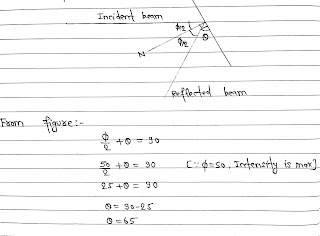 Incident beam
φ/2
φ/2
θ
N
Reflected beam
From figure:-
φ/2 + θ = 90
50/2 + θ = 90 [∵ φ=50, Intensity is max]
25 + θ = 90
θ = 90-25
θ = 65